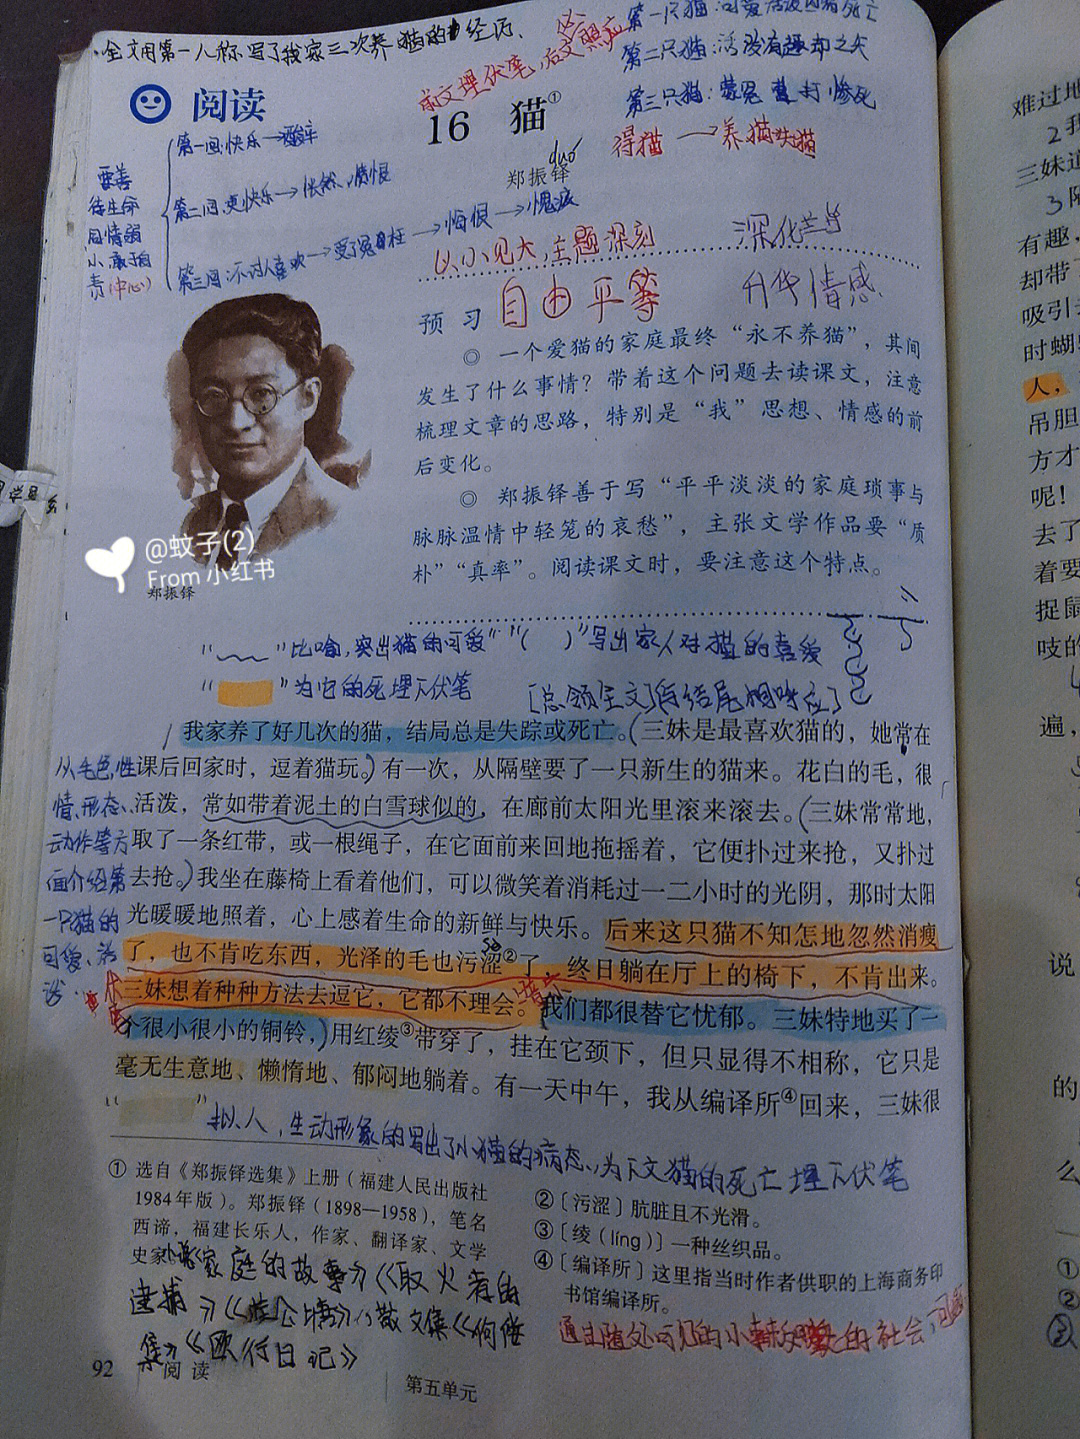 ·全文用第一人称写了我家三次养猫的经历、
第一只猫:可爱活泼因病死亡
第二只猫:活泼有趣却亡失
第三只猫:蒙冤 打 惨死
前文埋伏笔,后文照应
得猫→养猫→失猫
阅读
16 猫①
duó
郑振铎
第一回:快乐→酸辛
第二回:更快乐→怅然、愤恨
第三回:不讨人喜欢→受了冤枉→悔恨→愧疚
要善
待生命
同情弱
小 敢于自
责(中心)
以小见大,主题深刻
深化
升华情感
预习
自由平等
◎ 一个爱猫的家庭最终“永不养猫”，其间
发生了什么事情？带着这个问题去读课文，注意
梳理文章的思路，特别是“我”思想、情感的前
后变化。
◎ 郑振铎善于写“平平淡淡的家庭琐事与
脉脉温情中轻笼的哀愁”，主张文学作品要“质
朴”“真率”。阅读课文时，要注意这个特点。
@蚊子(2)
From 小红书
郑振铎
“ ”比喻,突出猫的可爱“( )”写出家人对猫的喜爱
“ ”为它的死埋下伏笔
[总领全文]与结尾相呼应]
我家养了好几次的猫，结局总是失踪或死亡。(三妹是最喜欢猫的，她常在
课后回家时，逗着猫玩。)有一次，从隔壁要了一只新生的猫来。花白的毛，很
活泼，常如带着泥土的白雪球似的，在廊前太阳光里滚来滚去。(三妹常常地，
取了一条红带，或一根绳子，在它面前来回地拖摇着，它便扑过来抢，又扑过
去抢。)我坐在藤椅上看着他们，可以微笑着消耗过一二小时的光阴，那时太阳
光暖暖地照着，心上感着生命的新鲜与快乐。后来这只猫不知怎地忽然消瘦
了，也不肯吃东西，光泽的毛也污涩②了，终日躺在厅上的椅下，不肯出来。
三妹想着种种方法去逗它，它都不理会。(我们都很替它忧郁。三妹特地买了一
个很小很小的铜铃，)用红绫③带穿了，挂在它颈下，但只显得不相称，它只是
毫无生意地、懒惰地、郁闷地躺着。有一天中午，我从编译所④回来，三妹很
从毛色,性
情、形态、
动作等方
面介绍第
一只猫的
可爱、活
泼.
“ ”拟人,生动形象的写出了小猫的病态,为下文猫的死亡埋下伏笔
① 选自《郑振铎选集》上册（福建人民出版社
1984年版）。郑振铎（1898—1958），笔名
西谛，福建长乐人，作家、翻译家、文学
史家。
小说《家庭的故事》《取火者的
逮捕》《桂公塘》,散文集《佝偻
集》《欧行日记》
②〔污涩〕肮脏且不光滑。
③〔绫（líng）〕一种丝织品。
④〔编译所〕这里指当时作者供职的上海商务印
书馆编译所。
通过随处可见的小 的社会
92 阅读
第五单元
难过地
三妹道
有趣，
却带
吸引
时蝴
人，
吊胆
方才
呢！
去了
着要
捉鼠
吱的
遍，
说
的
么
①
②
③